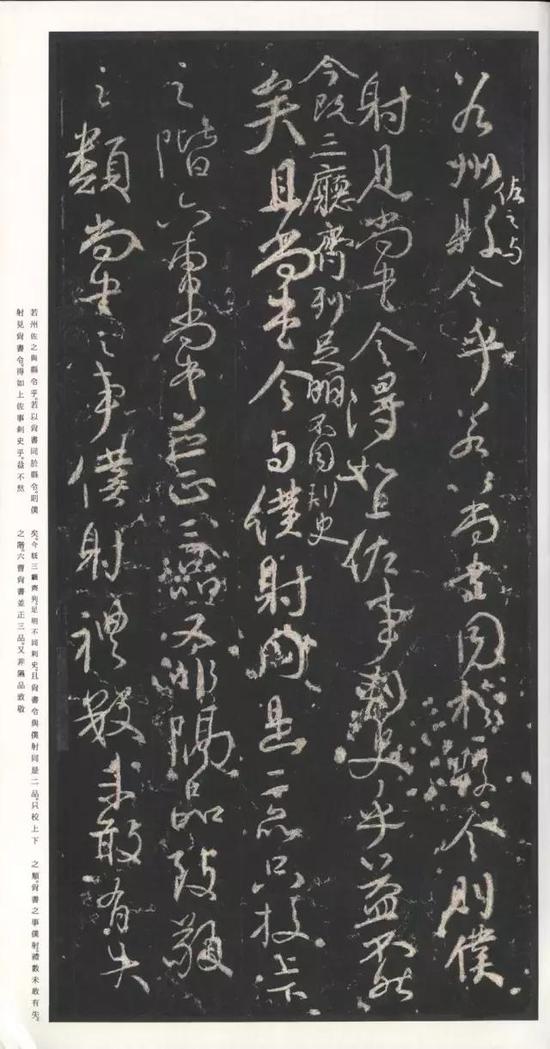 若州佐之与縣令乎若以尚書同於縣令則僕
射見尚書令得如上佐事刺史乎益不然
今既三廳齊列足明不同刺史
矣且尚書令与僕射同是二品只校上下
之階六曹尚書並正三品又非隔品致敬
之類尚書之事僕射禮數未敢有失
若州佐之與縣令乎。若以尙書同於縣令。則僕
射見尙書令。得如上佐事刺史乎。益不然
矣。今既三廳齊列。足明不同刺史。且尙書令與僕射同是二品。只校上下
之階。六曹尙書並正三品。又非隔品致敬
之類。尙書之事僕射。禮數未敢有失。